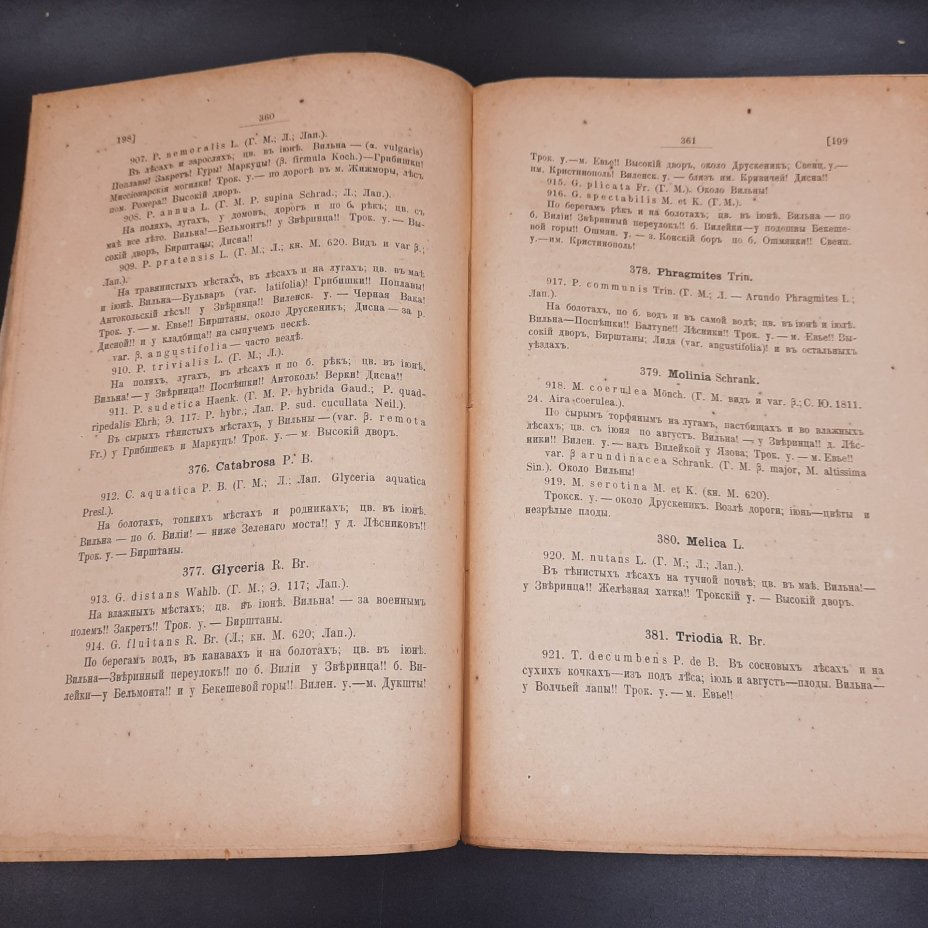 360
198]
907. P. nemoralis L. (Г. М.; Л.; Лап.).
Въ лѣсахъ и заросляхъ; цв. въ іюнѣ. Вильна — (α. vulgaris)
Поплавы! Закретъ! Гуры! Маркуцы! (β. firmula Koch.)—Грибишки!
Миссіонарскія могилки! Трок. у.— по дорогѣ въ м. Жижморы, лѣсъ
пом. Ромера!! Высокій дворъ.
908. P. annua L. (Г. М. P. supina Schrad.; Л.; Лап.).
На поляхъ, лугахъ, у домовъ, дорогъ и по б. рѣкъ; цв. съ
маѣ все лѣто. Вильна!—Бельмонтъ!! у Звѣринца!! Трок. у. — Вы-
сокій дворъ, Бирштаны; Дисна!!
909. P. pratensis L. (Г. М.; Л.; кн. М. 620. Видъ и var β.;
Лап.).
На травянистыхъ мѣстахъ, въ лѣсахъ и на лугахъ; цв. въ маѣ
и іюнѣ. Вильна—Бульваръ (var. latifolia)! Грибишки!! Поплавы!
Антокольскій лѣсъ!! у Звѣринца!! Виленск. у. — Черная Вака!
Трок. у. — м. Евье!! Бирштаны, около Друскеникъ; Дисна — за р.
Дисной!! и у кладбища!! на сыпучемъ пескѣ.
var. β. angustifolia — часто вездѣ.
910. P. trivialis L. (Г. М.; Л.).
На поляхъ, лугахъ, въ лѣсахъ и по б. рѣкъ; цв. въ іюнѣ.
Вильна! — у Звѣринца!! Поспѣшки!! Антоколь! Верки! Дисна!!
911. P. sudetica Haenk. (Г. М. P. hybrida Gaud.; P. quad-
ripedalis Ehrh; Э. 117. P. hybr.; Лап. P. sud. cucullata Neil.).
Въ сырыхъ тѣнистыхъ мѣстахъ, у Вильны — (var. β. remota
Fr.) у Грибишекъ и Маркуцъ! Трок. у. — м Высокій дворъ.
376. Catabrosa P. B.
912. C. aquatica P. B. (Г. М.; Л.; Лап. Glyceria aquatica
Presl.).
На болотахъ, топкихъ мѣстахъ и родникахъ; цв. въ іюнѣ.
Вильна — по б. Виліи! — ниже Зеленаго моста!! у д. Лѣсниковъ!!
Трок. у. — Бирштаны.
377. Glyceria R. Br.
913. G. distans Wahlb. (Г. М.; Э. 117; Лап.).
На влажныхъ мѣстахъ; цв. въ іюнѣ. Вильна! — за военнымъ
полемъ!! Закретъ!! Трок. у. — Бирштаны.
914. G. fluitans R. Br. (Л.; кн. М. 620; Лап.).
По берегамъ водъ, въ канавахъ и на болотахъ; цв. въ іюнѣ.
Вильна—Звѣринный переулокъ!! по б. Виліи у Звѣринца!! б. Ви-
лейки—у Бельмонта!! и у Бекешевой горы!! Вилен. у.—м. Дукшты!
361
[199
Трок. у.—м. Евье!! Высокій дворъ, около Друскеникъ; Свенц. у.—
им. Кристинополь! Виленск. у. — близъ им. Кривичей! Дисна!!
915. G. plicata Fr. (Г. М.). Около Вильны!
916. G. spectabilis M. et K. (Г. М.).
По берегамъ рѣкъ и на болотахъ; цв. въ іюнѣ. Вильна — по
б. Виліи! Звѣринный переулокъ!! б. Вилейки—у подошвы Бекеше-
вой горы!! Ошмян. у. — з. Конскій боръ по б. Ошмянки!! Свенц.
у.—им. Кристинополь!
378. Phragmites Trin.
917. P. communis Trin. (Г. М.; Л. — Arundo Phragmites L.;
Лап.).
На болотахъ, по б. водъ и въ самой водѣ; цв. въ іюнѣ и іюлѣ.
Вильна—Поспѣшки!! Балтупе!! Лѣсники!! Трок. у. — м. Евье!! Вы-
сокій дворъ, Бирштаны; Лида (var. angustifolia)! и въ остальныхъ
уѣздахъ.
379. Molinia Schrank.
918. M. coerulea Mönch. (Г. М. видъ и var. β.; С. Ю. 1811.
24. Aira coerulea.).
По сырымъ торфянымъ лугамъ, пастбищахъ и во влажныхъ
лѣсахъ; цв. съ іюня по августъ. Вильна! — у Звѣринца!! д. Лѣс-
ники!! Вилен. у. — надъ Вилейкой у Язова; Трок. у. — м. Евье!!
var. β arundinacea Schrank. (Г. М. β. major, M. altissima
Sin.). Около Вильны!
919. M. serotina M. et K. (кн. М. 620).
Трокск. у. — около Друскеникъ. Возлѣ дороги; іюнь—цвѣты и
незрѣлые плоды.
380. Melica L.
920. M. nutans L. (Г. М.; Л.; Лап.).
Въ тѣнистыхъ лѣсахъ на тучной почвѣ; цв. въ маѣ. Вильна!—
у Звѣринца!! Желѣзная хатка!! Трокскій у. — Высокій дворъ.
381. Triodia R. Br.
921. T. decumbens P. de B. Въ сосновыхъ лѣсахъ и на
сухихъ кочкахъ—изъ подъ лѣса; іюль и августъ—плоды. Вильна—
у Волчьей лапы!! Трок. у. — м. Евье!!